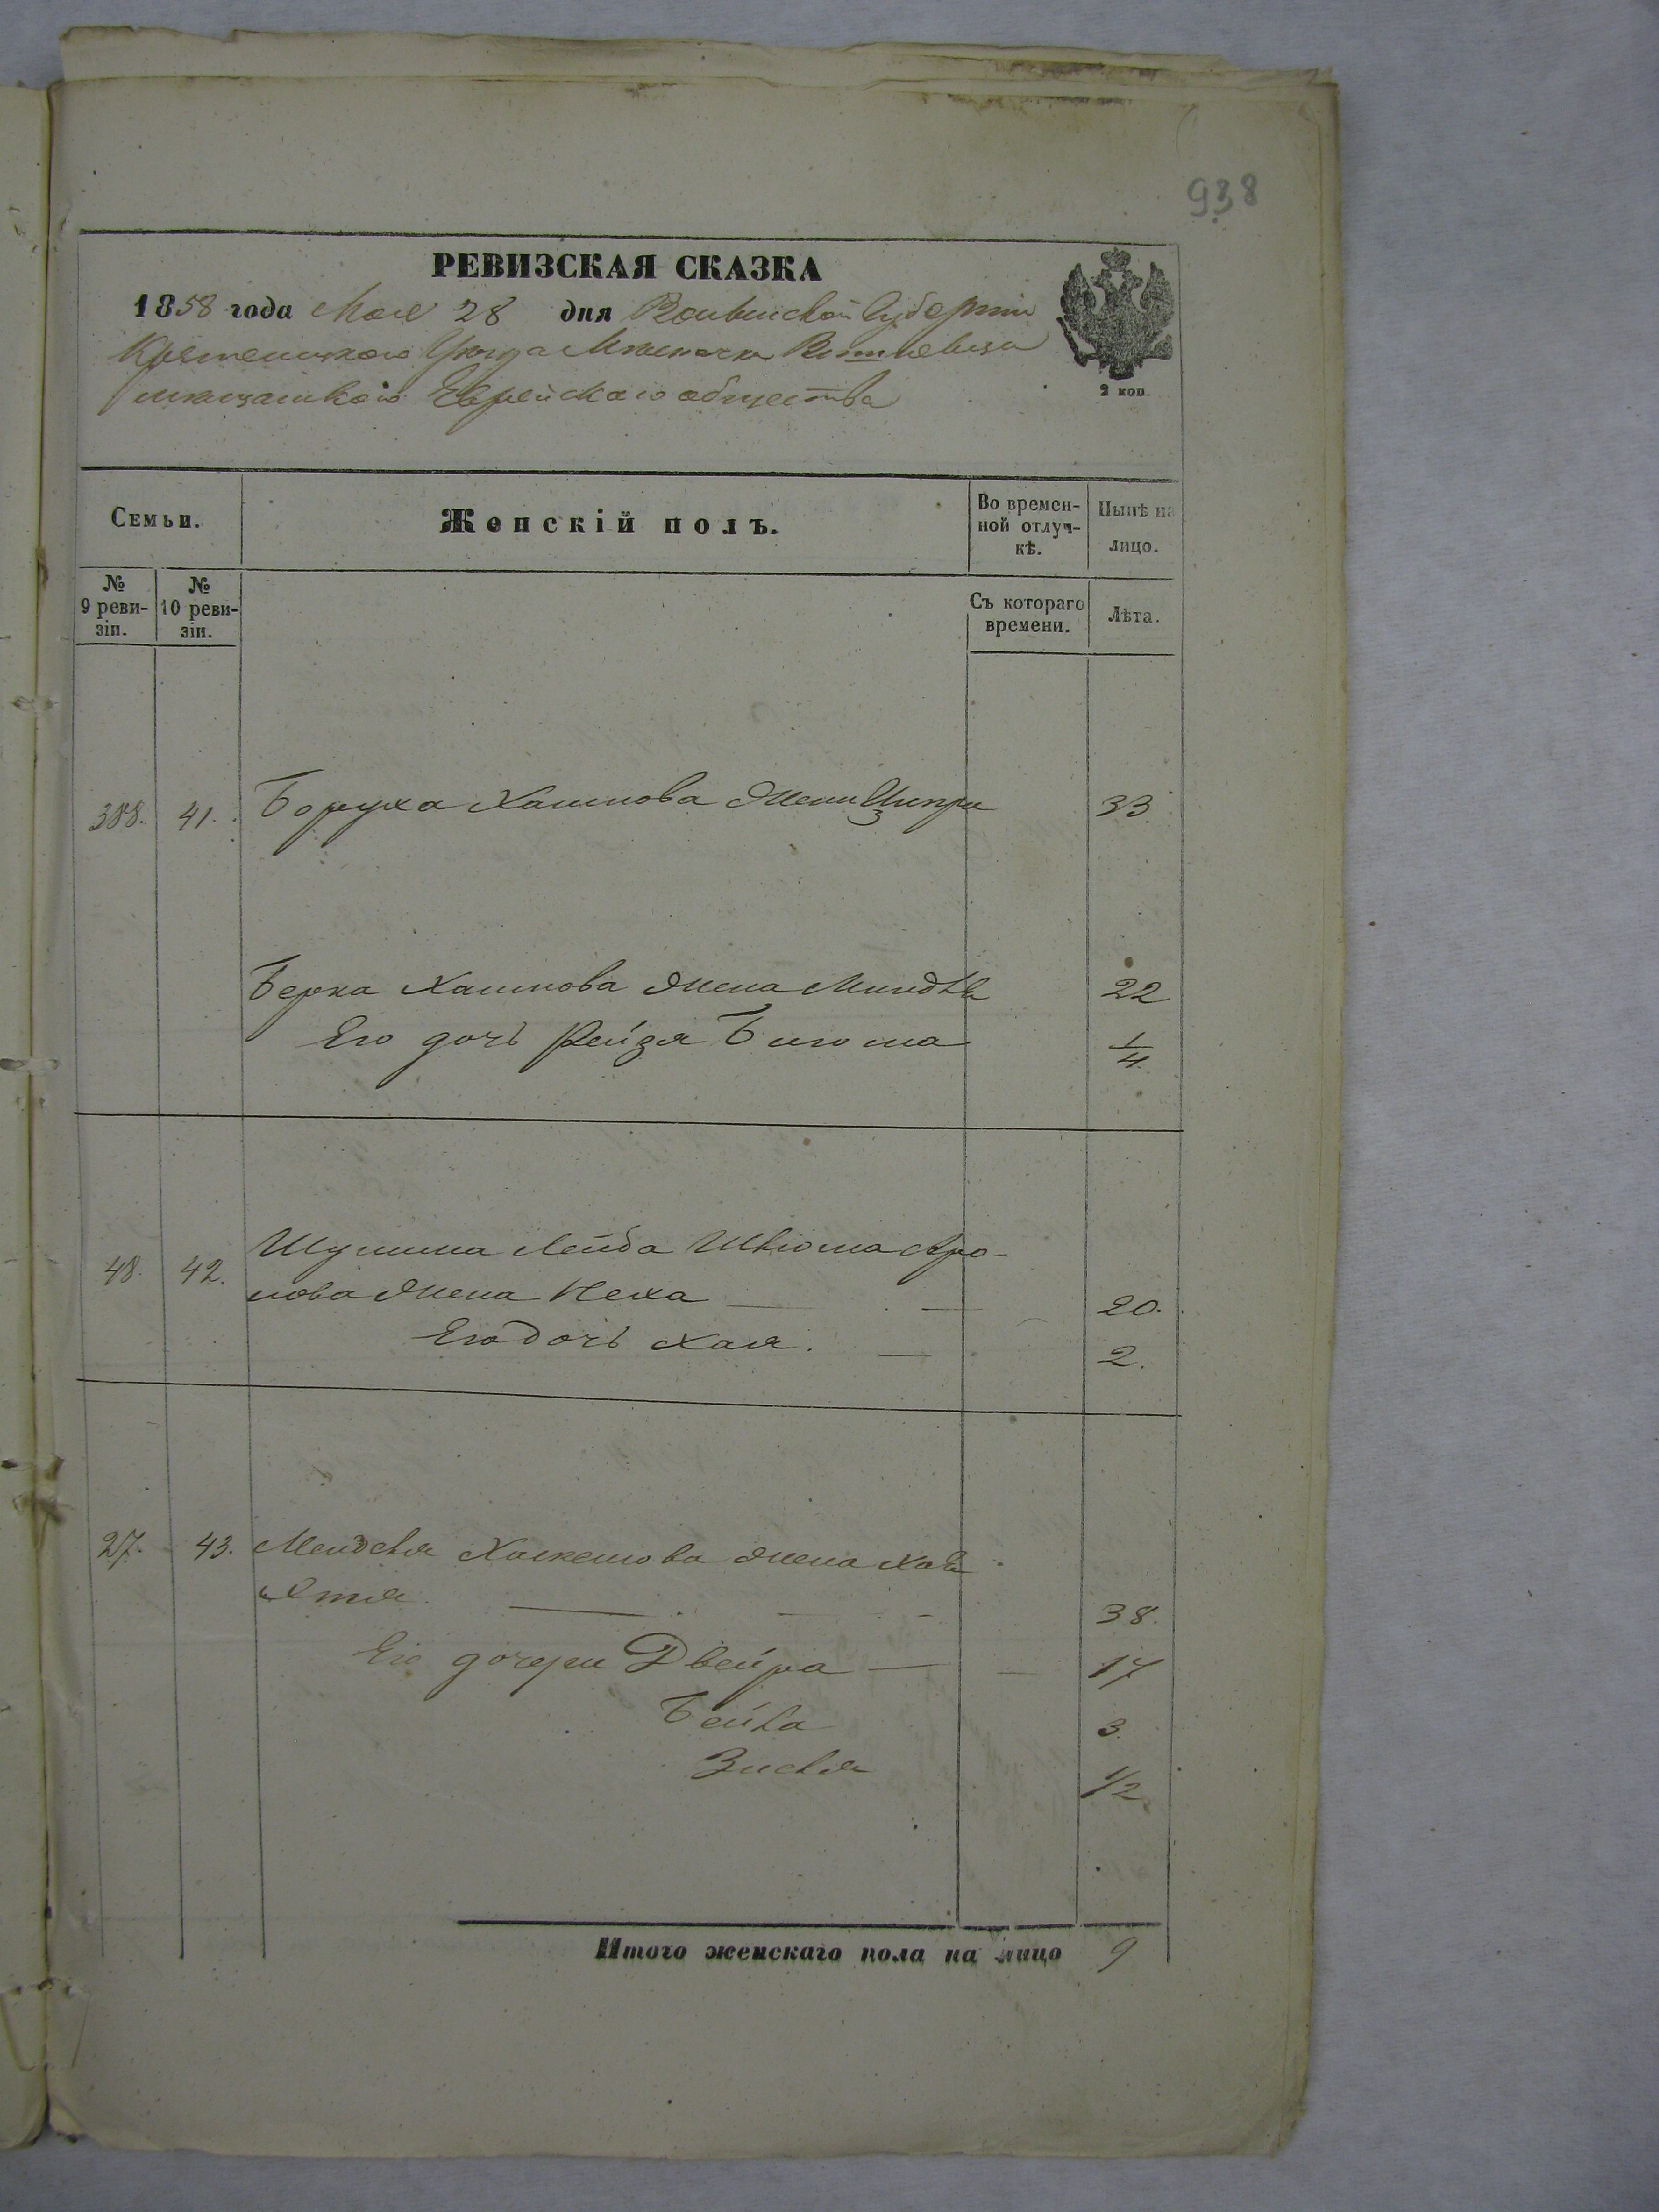 938
РЕВИЗСКАЯ СКАЗКА
1858 года Мая 28 дня Волынской Губерніи
Кременецкаго Уѣзда Мѣстечка Вишневца
мѣщанскаго Еврейскаго общества
2 коп
Семьи.
Женскій полъ.
Во времен-
ной отлуч-
кѣ.
Нынѣ на
лицо.
№
9 реви-
зіи.
№
10 реви-
зіи.
Съ котораго
времени.
Лѣта.
388. 41. Боруха Хаимова жена Ципра 33
Берка Хаимова жена Миндля 22
Его дочь Рейзя Блюма 1/4
48. 42. Шулима Лейба Шлиома Аро-
нова жена Неха 20.
Его дочь Хая. 2.
27. 43. Менделя жена Хая
Этля 38.
Его дочери Двейра 17
Бейла 3.
Зисля 1/2
Итого женскаго пола на лицо 9